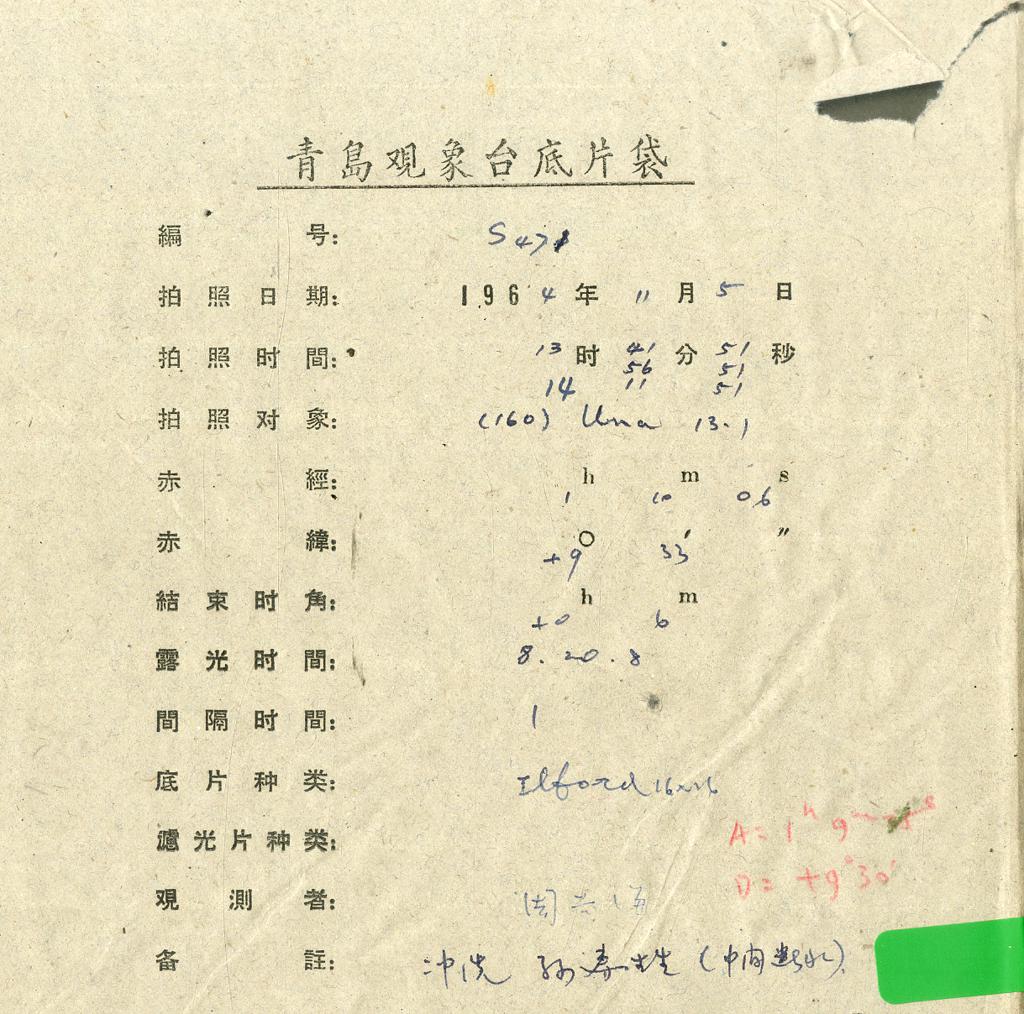 青島观象台底片袋
編号: S471
拍照日期: 1964年 11月 5日
拍照时間: 13时 41分 51秒
56 51
14 11 51
拍照对象: (160) Una 13.1
赤經: h m s
1 10 06
赤緯: ○ ′ ″
+9 33
結束时角: h m
+0 6
露光时間: 8. 20. 8
間隔时間: 1
底片种类: Ilford 16×16
濾光片种类:
A = 1h 9m
D = +9°30′
观測者: 周
备註: 冲洗 孙寿 (中间断水)